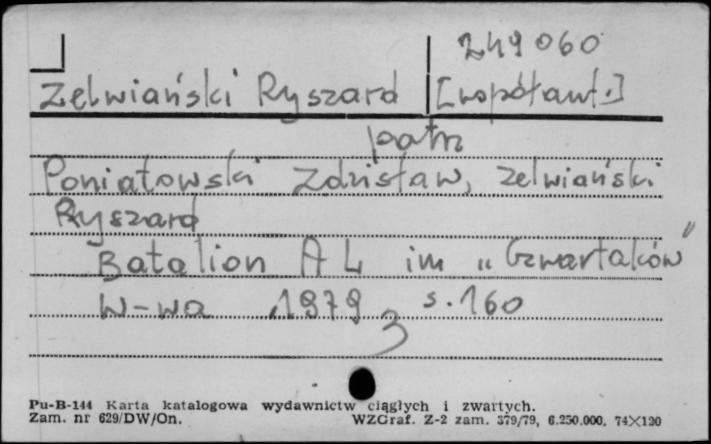 249060
Zelwiański Ryszard [współaut.]
patrz
Poniatowski Zdzisław, Zelwiański
Ryszard
Batalion AL im „Czwartaków”
W-wa 1979 s. 160
3
Pu-B-144 Karta katalogowa wydawnictw ciągłych i zwartych.
Zam. nr 629/DW/On. WZGraf. Z-2 zam. 379/79, 6.250.000, 74X120